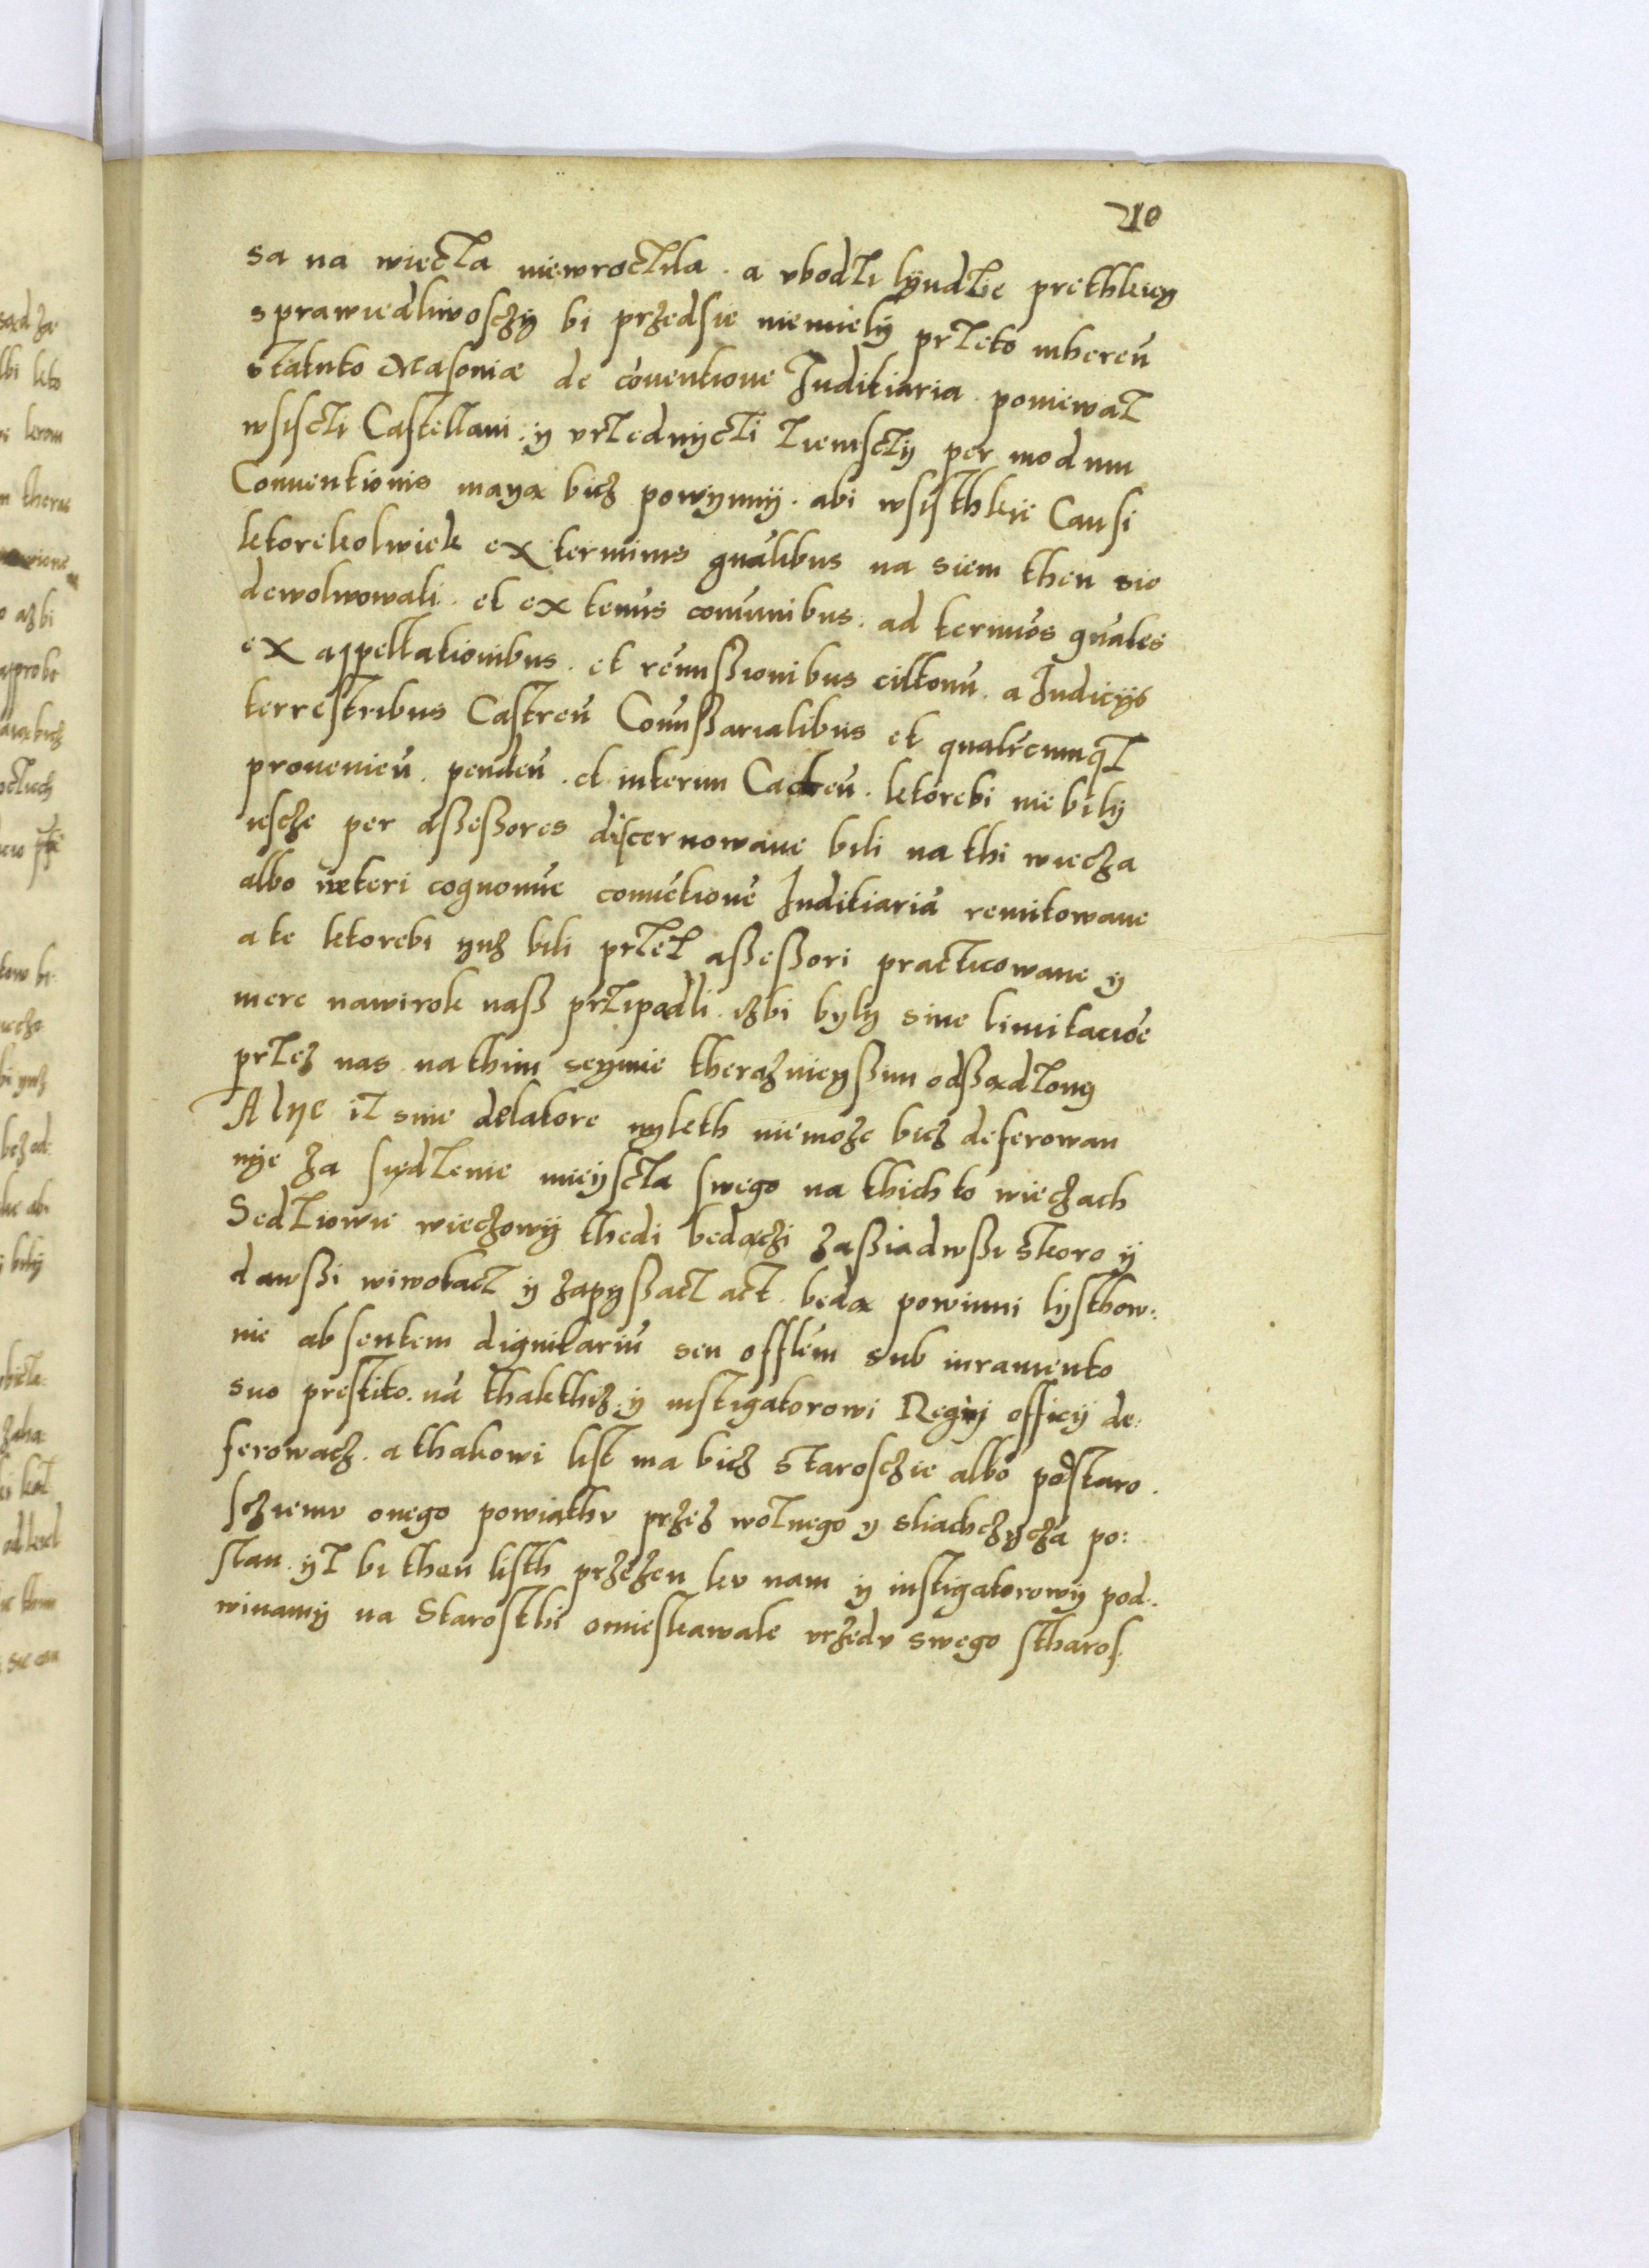 40
sa na wiecza niewroczila. a vbodzi lyudzie prethkiey
sprawiedliwosczÿ bi przedsie niemielÿ przeto inheren
statuto Masoniæ de conuentione Juditiaria. poniewaz
wsisczi Castellani. ÿ vrzednÿczi ziemsczÿ per modum
Conuentionis maya bicz powÿnnÿ. abi wsisthkie Causi
ktorekolwiek ex terminis gnalibus na siem then sie
dewolwowali. et ex tenus comunibus. ad terminos gnales
ex appellationibus. et remissionibus a Judicÿs
terrestribus Castren Comissarialibus et qualitercunqz
prouenien. penden. et interim Caden. ktorebi nie bilÿ
iescze per assessores discernowane bili na thi wiecza
albo conuentione Juditiaria remitowane
a te ktorebi ynz bili przez assessori practicowane ÿ
mere nawirok nass przipadli. izbi bÿlÿ sine limitacioe
przez nas na thim seymie theraznieyssim odssadzony
Alye iz sine delatore nyketh niemoze bicz deferowan
nye za siedzenie mieÿscza swego na thich to wieczach
Sedziowie wieczowÿ thedi bedaczi zassiadwssi skoro ÿ
dawssi wiwolacz ÿ zapÿssacz act. beda powinni lÿsthow:
nie absentem dignitariu seu offlem sub iuramento
suo prestito. na thakthiz. ÿ instigatorowi Regÿ officÿ de:
ferowacz. a thakowi list ma bicz staroschie albo podstaro.
sziemu onego powiathv przez woznego ÿ sliachczycza po:
slan. yz bi then listh przezen kv nam ÿ instigatorowÿ pod.
winamÿ na Starosthi omieskawale vrzedv swego stharos: